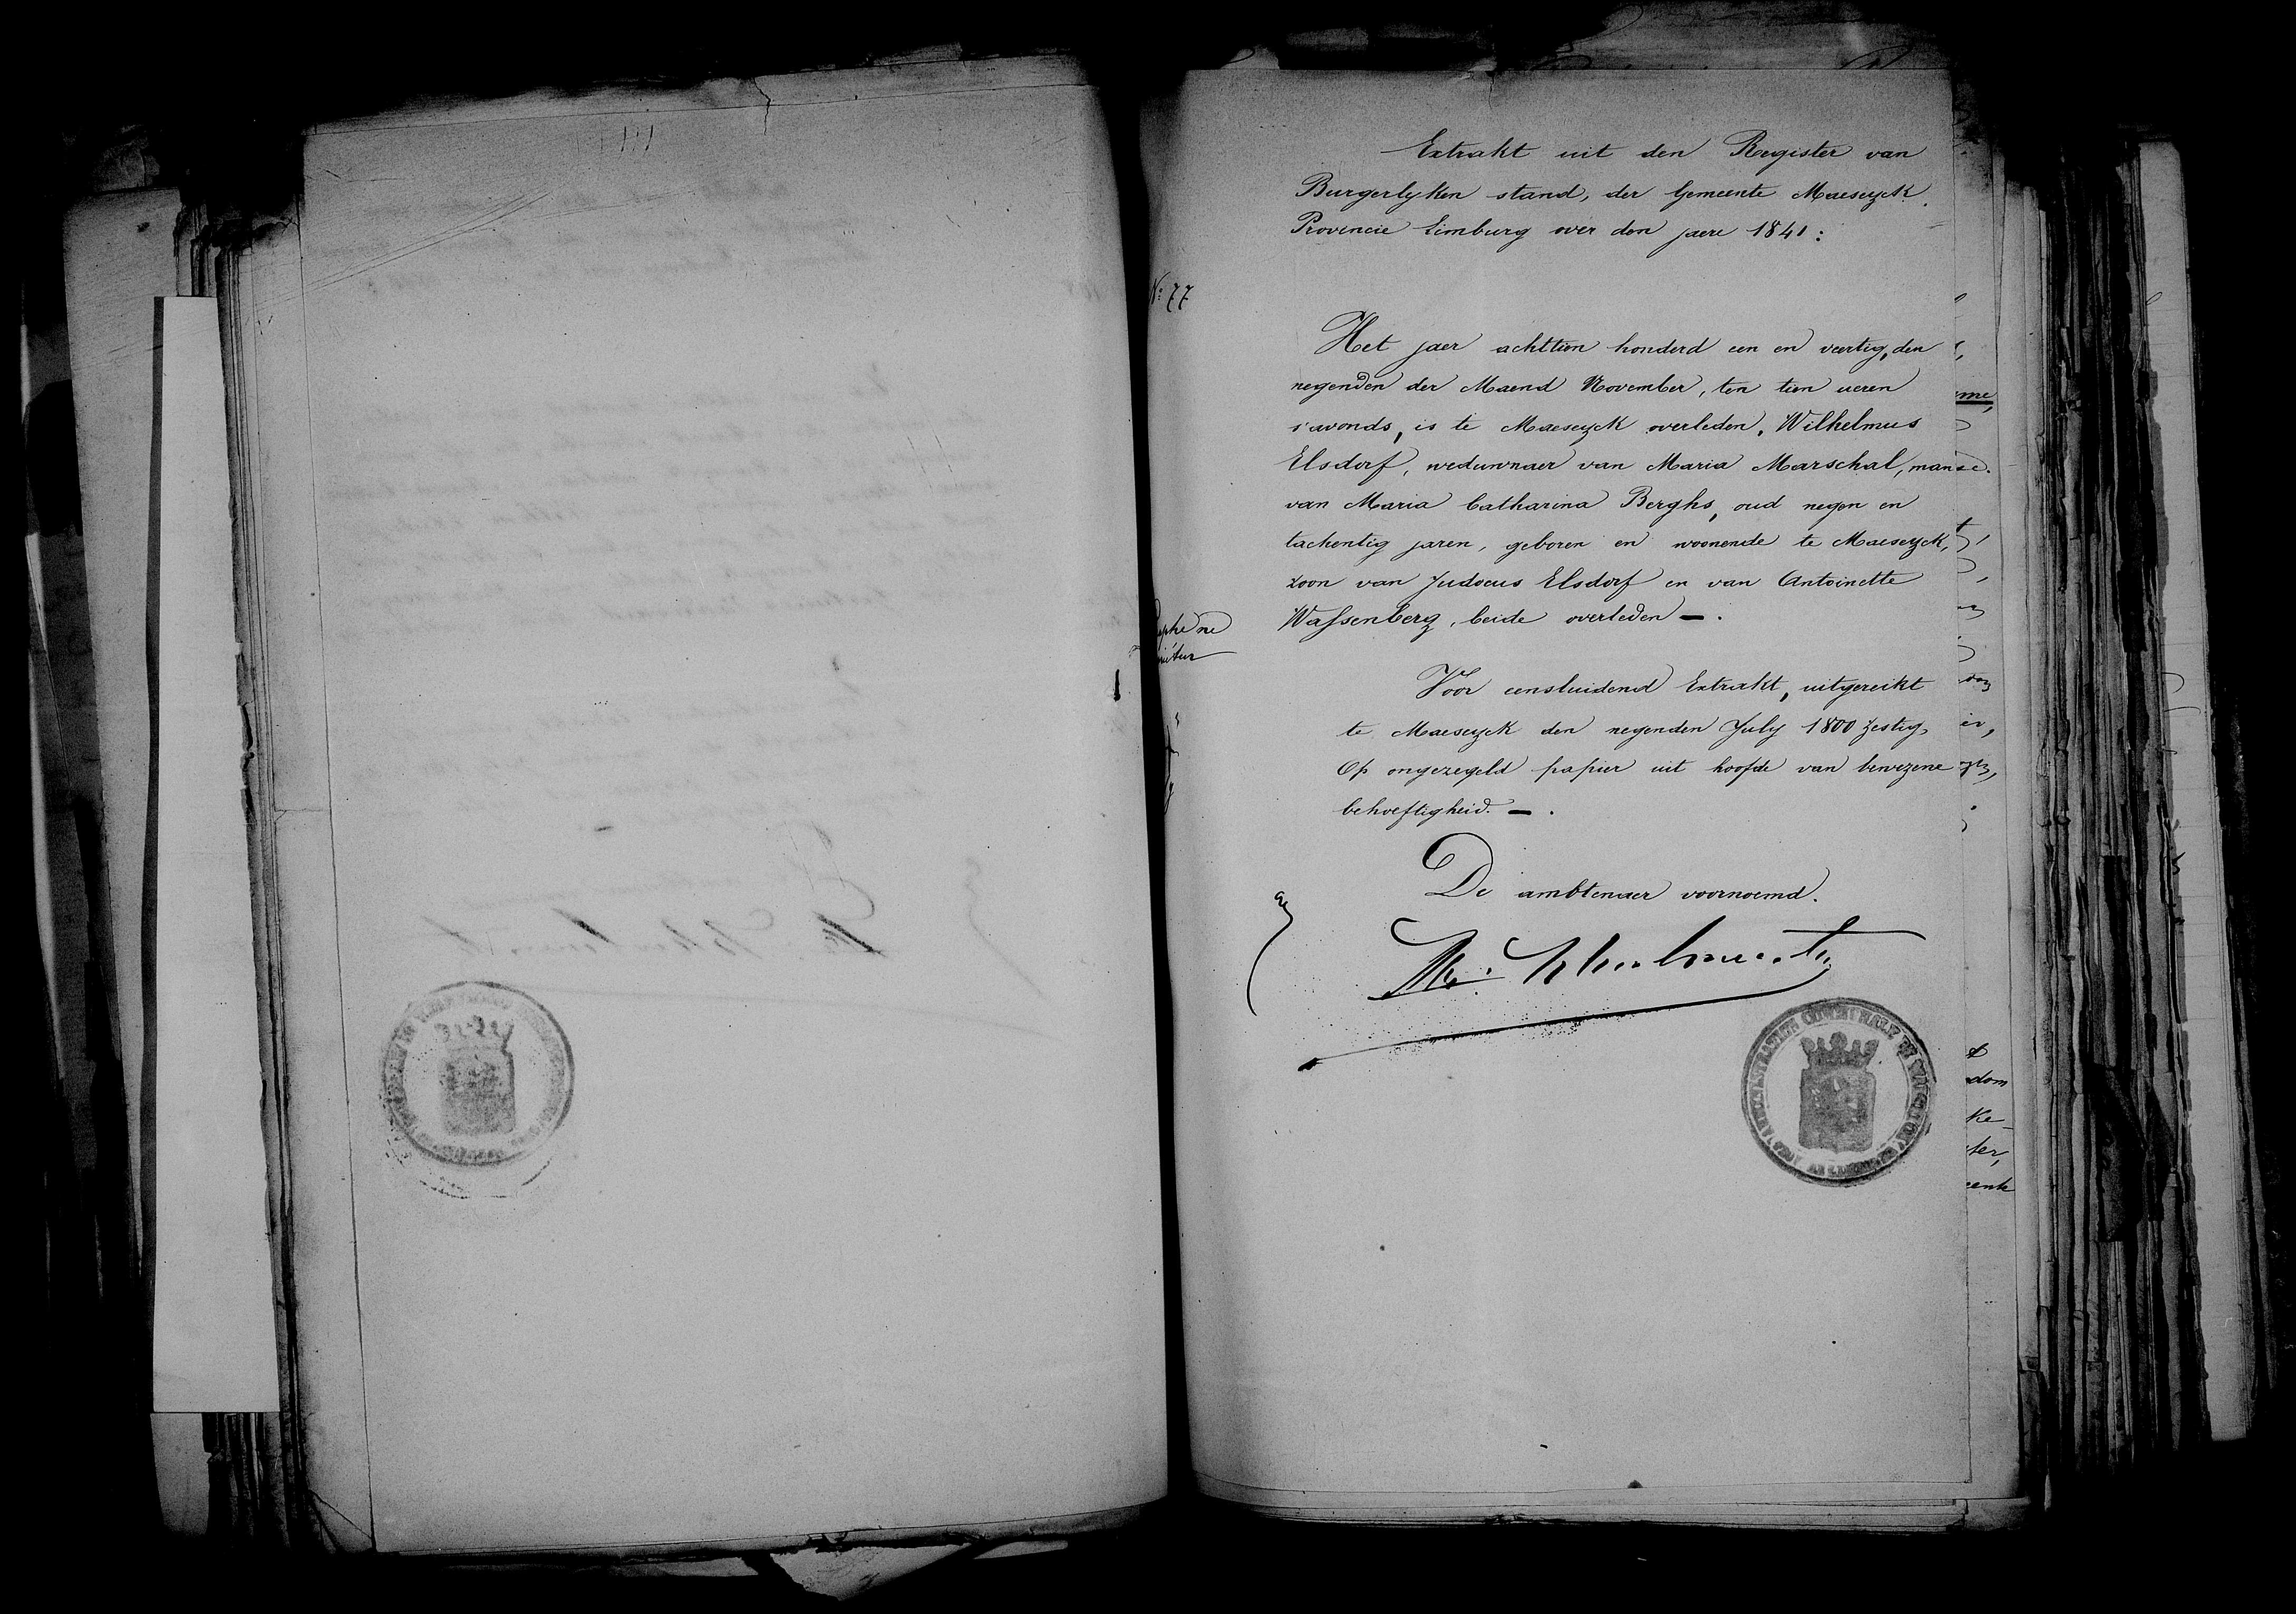 Extrakt uit den Register van
Burgerlyken stand, der Gemeente Maeseyck.
Provincie Limburg over den jaere 1841:
N: 77
Het jaer achttien honderd een en veertig, den
negenden der Maend November, ten tien ueren
s'avonds, is te Maeseyck overleden, Wilhelmus
Elsdorf, weduwnaer van Maria Marschal, man
van Maria Catharina Berghs, oud negen en
tachentig jaren, geboren en woonende te Maeseyck,
zoon van Judocus Elsdorf en van Antoinette
Wassenberg, beide overleden —.
Voor eensluidend Extrakt, uitgereikt
te Maeseyck den negenden July 1800 zestig
Op ongezegeld papier uit hoofde van bewezene
behoeftigheid. —.
De ambtenaer voornoemd.